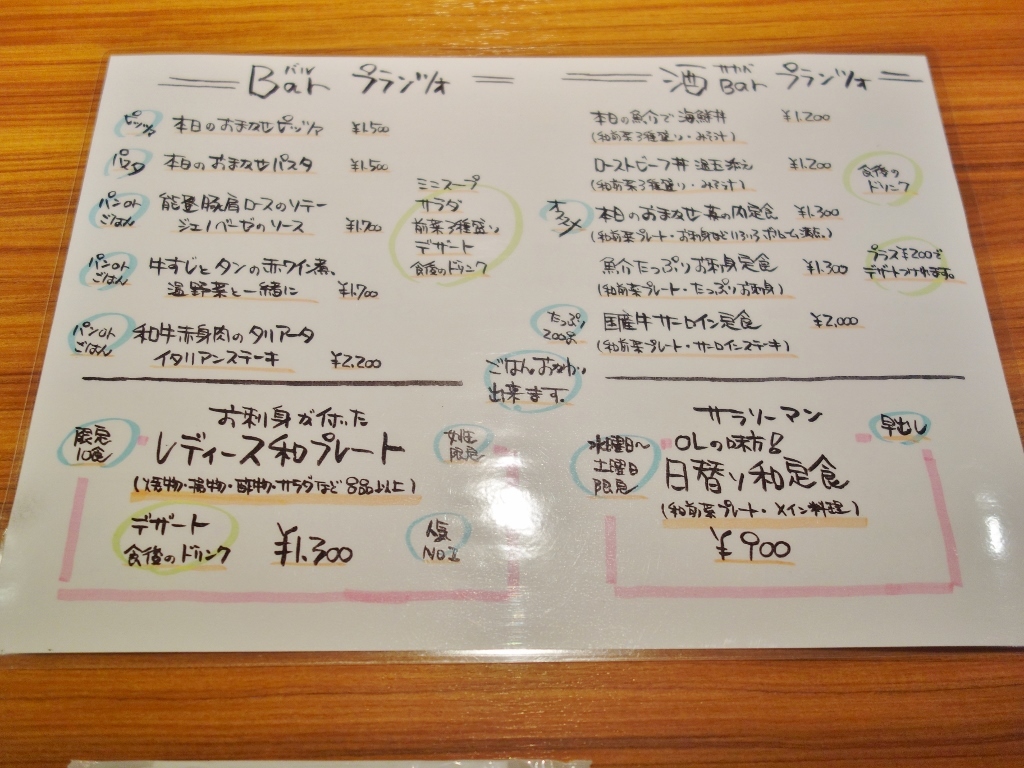 Bar バル プランヅォ
ピッツァ 本日のおまかせピッツァ ¥1.500
パスタ 本日のおまかせパスタ ¥1.500
パンorごはん 能登豚肩ロースのソテー
ジェノベーゼのソース ¥1.700
パンorごはん 牛すじとタンの赤ワイン煮、
温野菜と一緒に ¥1.700
パンorごはん 和牛赤身肉のタリアータ
イタリアンステーキ ¥2,200
ミニスープ
サラダ
前菜3種盛り
デザート
食後のドリンク
酒Bar サカバ プランヅォ
本日の魚介で海鮮丼 ¥1.200
(和前菜3種盛り・みそ汁)
ローストビーフ丼 温玉添え ¥1.200
(和前菜3種盛り・みそ汁)
オススメ 本日のおまかせ昼の肉定食 ¥1.300
(和前菜プレート・お刺身などいろいろボリューム満点。)
魚介たっぷりお刺身定食 ¥1.300
(和前菜プレート・たっぷりお刺身)
たっぷり200g 国産牛サーロイン定食 ¥2,000
(和前菜プレート・サーロインステーキ)
食後の
ドリンク
プラス¥200で
デザートつけれます。
ごはんおかわり
出来ます。
限定
10食
お刺身が付いた
レディース和プレート
女性
限定
(焼物・揚物・酢物・サラダなど8品以上)
デザート
食後のドリンク
¥1.300
人気
NO1
水曜日〜
土曜日
限定
サラリーマン
OLの味方!!
日替り和定食
早出し
(和前菜プレート・メイン料理)
¥900